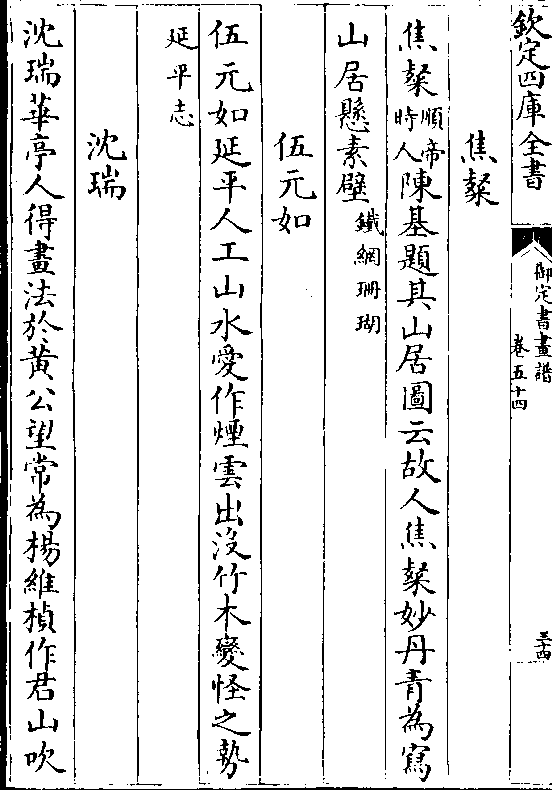 欽定四庫全書
御定書畫譜
卷五十四
三十四
焦粲
焦粲順帝時人陳基題其山居圖云故人焦粲妙丹青為寫
山居懸素壁鐵網珊瑚
伍元如
伍元如延平人工山水愛作煙雲出沒竹木變怪之勢
延平志
沈瑞
沈瑞華亭人得畫法於黃公望常為楊維楨作君山吹